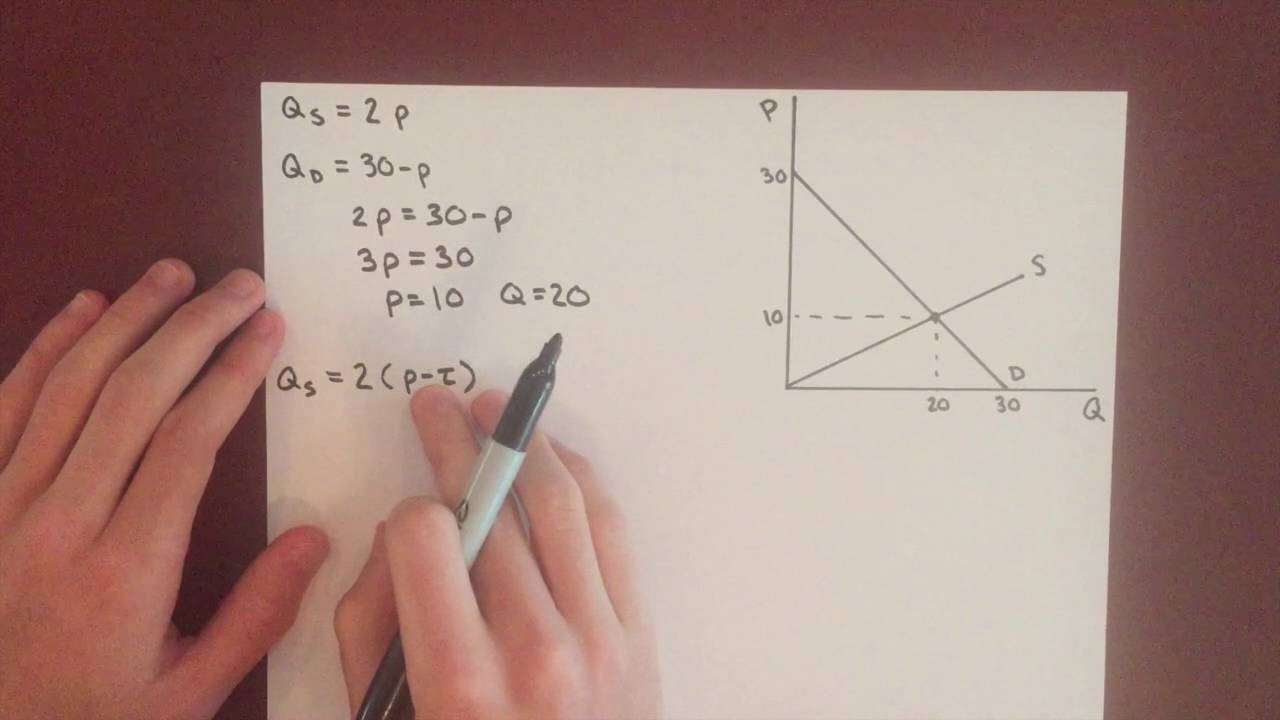 Q_S = 2p
Q_D = 30-p
2p = 30-p
3p = 30
p = 10 Q = 20
Q_S = 2(p-τ)
P
30
S
10
D
20 30 Q